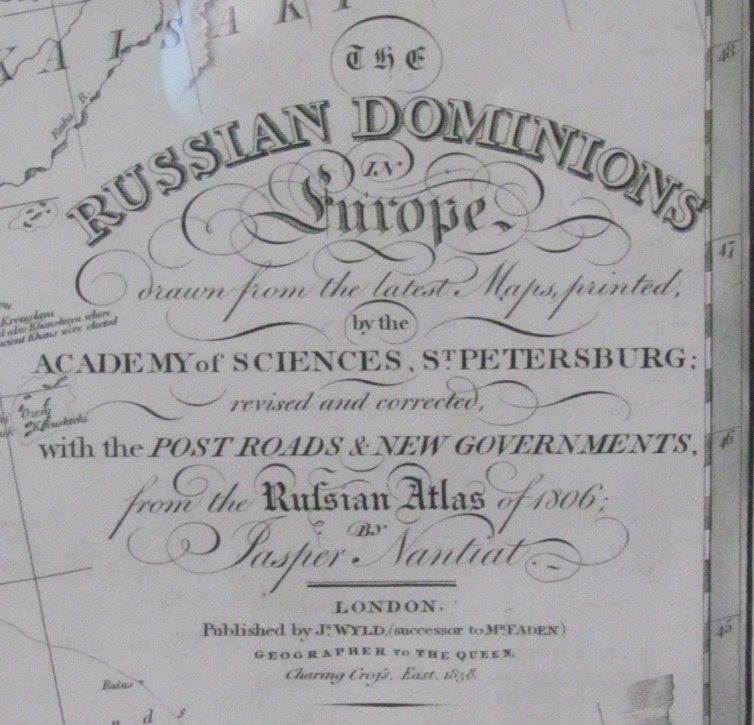 KAISAKI
THE
Emba R.
48
RUSSIAN DOMINIONS
IN
Europe.
47
drawn from the latest Maps, printed,
by the
Krouglaya
also Khanskaya where
ancient Khans were elected
ACADEMY of SCIENCES, ST PETERSBURG;
revised and corrected,
Ozero
with the POST ROADS & NEW GOVERNMENTS,
46
from the Ruſsian Atlas of 1806;
BY
Jasper Nantiat.
LONDON,
Published by Js. WYLD, (successor to Mr. FADEN)
45
GEOGRAPHER TO THE QUEEN,
Charing Croſs, East, 1838.
Ruins
n d s